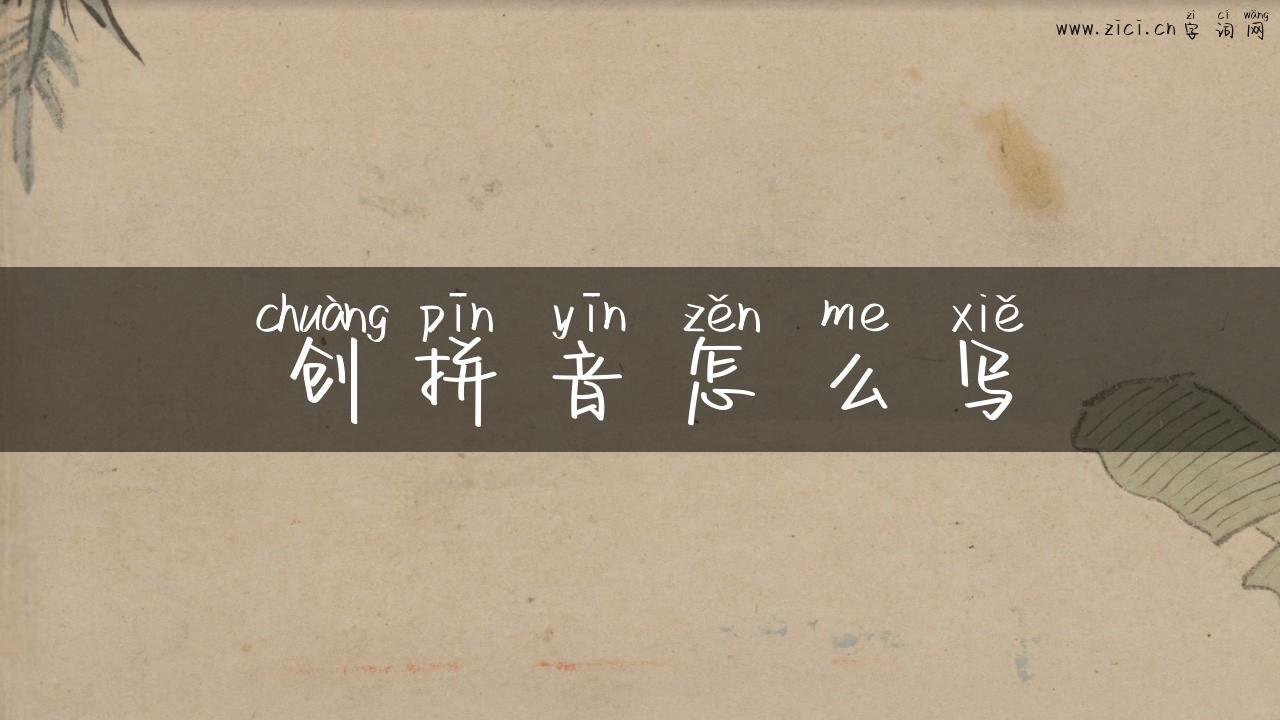 zì cí wǎng
www.zici.cn 字 词 网
chuàng pīn yīn zěn me xiě
创 拼 音 怎 么 写